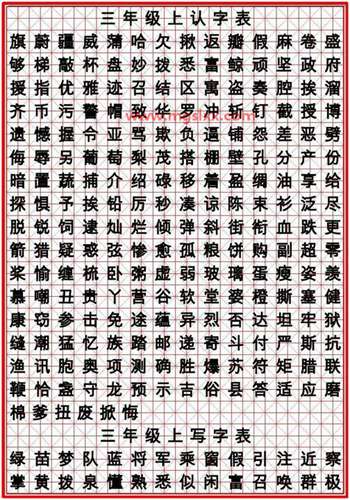 三年级上认字表
旗蔚疆威蒲哈欠揪返瓣假麻卷盛
够梯敲杯盘妙拨悉富鲸顽坚政府
援指优雅迹召结区寓盗奏腔挨溜
齐币污警帽致华罗冲斩钉截授博
遗憾握令亚骂欺负逼铺怨差恶劈
侮辱另葡萄梨茂搭棚壁孔分产份
暗置蔬捕介绍碌移着盈绸油享给
探惧予挨铅厉秒凑谅陈束衫泛尽
脱锐饲逮灿烂倾弹斜街衔血跌更
箭猎疑惑弦惨愈孤粮饼购副超零
桨愉缠梳卧粥虚弱玻璃蛋瘦姿羡
慕嘲丑贵丫营谷软堂婆橙撕塞健
康窃参击免途蕴异烈否达坦牢狱
缝潮猛忆族踏邮递寄斗付严斯抗
渔讯胞奥项测确胜爆苏符矩腊联
鞭恰盏守龙预示吉俗县答适应磨
棉爹扭废掀悔
三年级上写字表
绿苗梦队蓝将军乘窗假引注近察
掌黄拨泉懂熟悉似闲富召唤群极